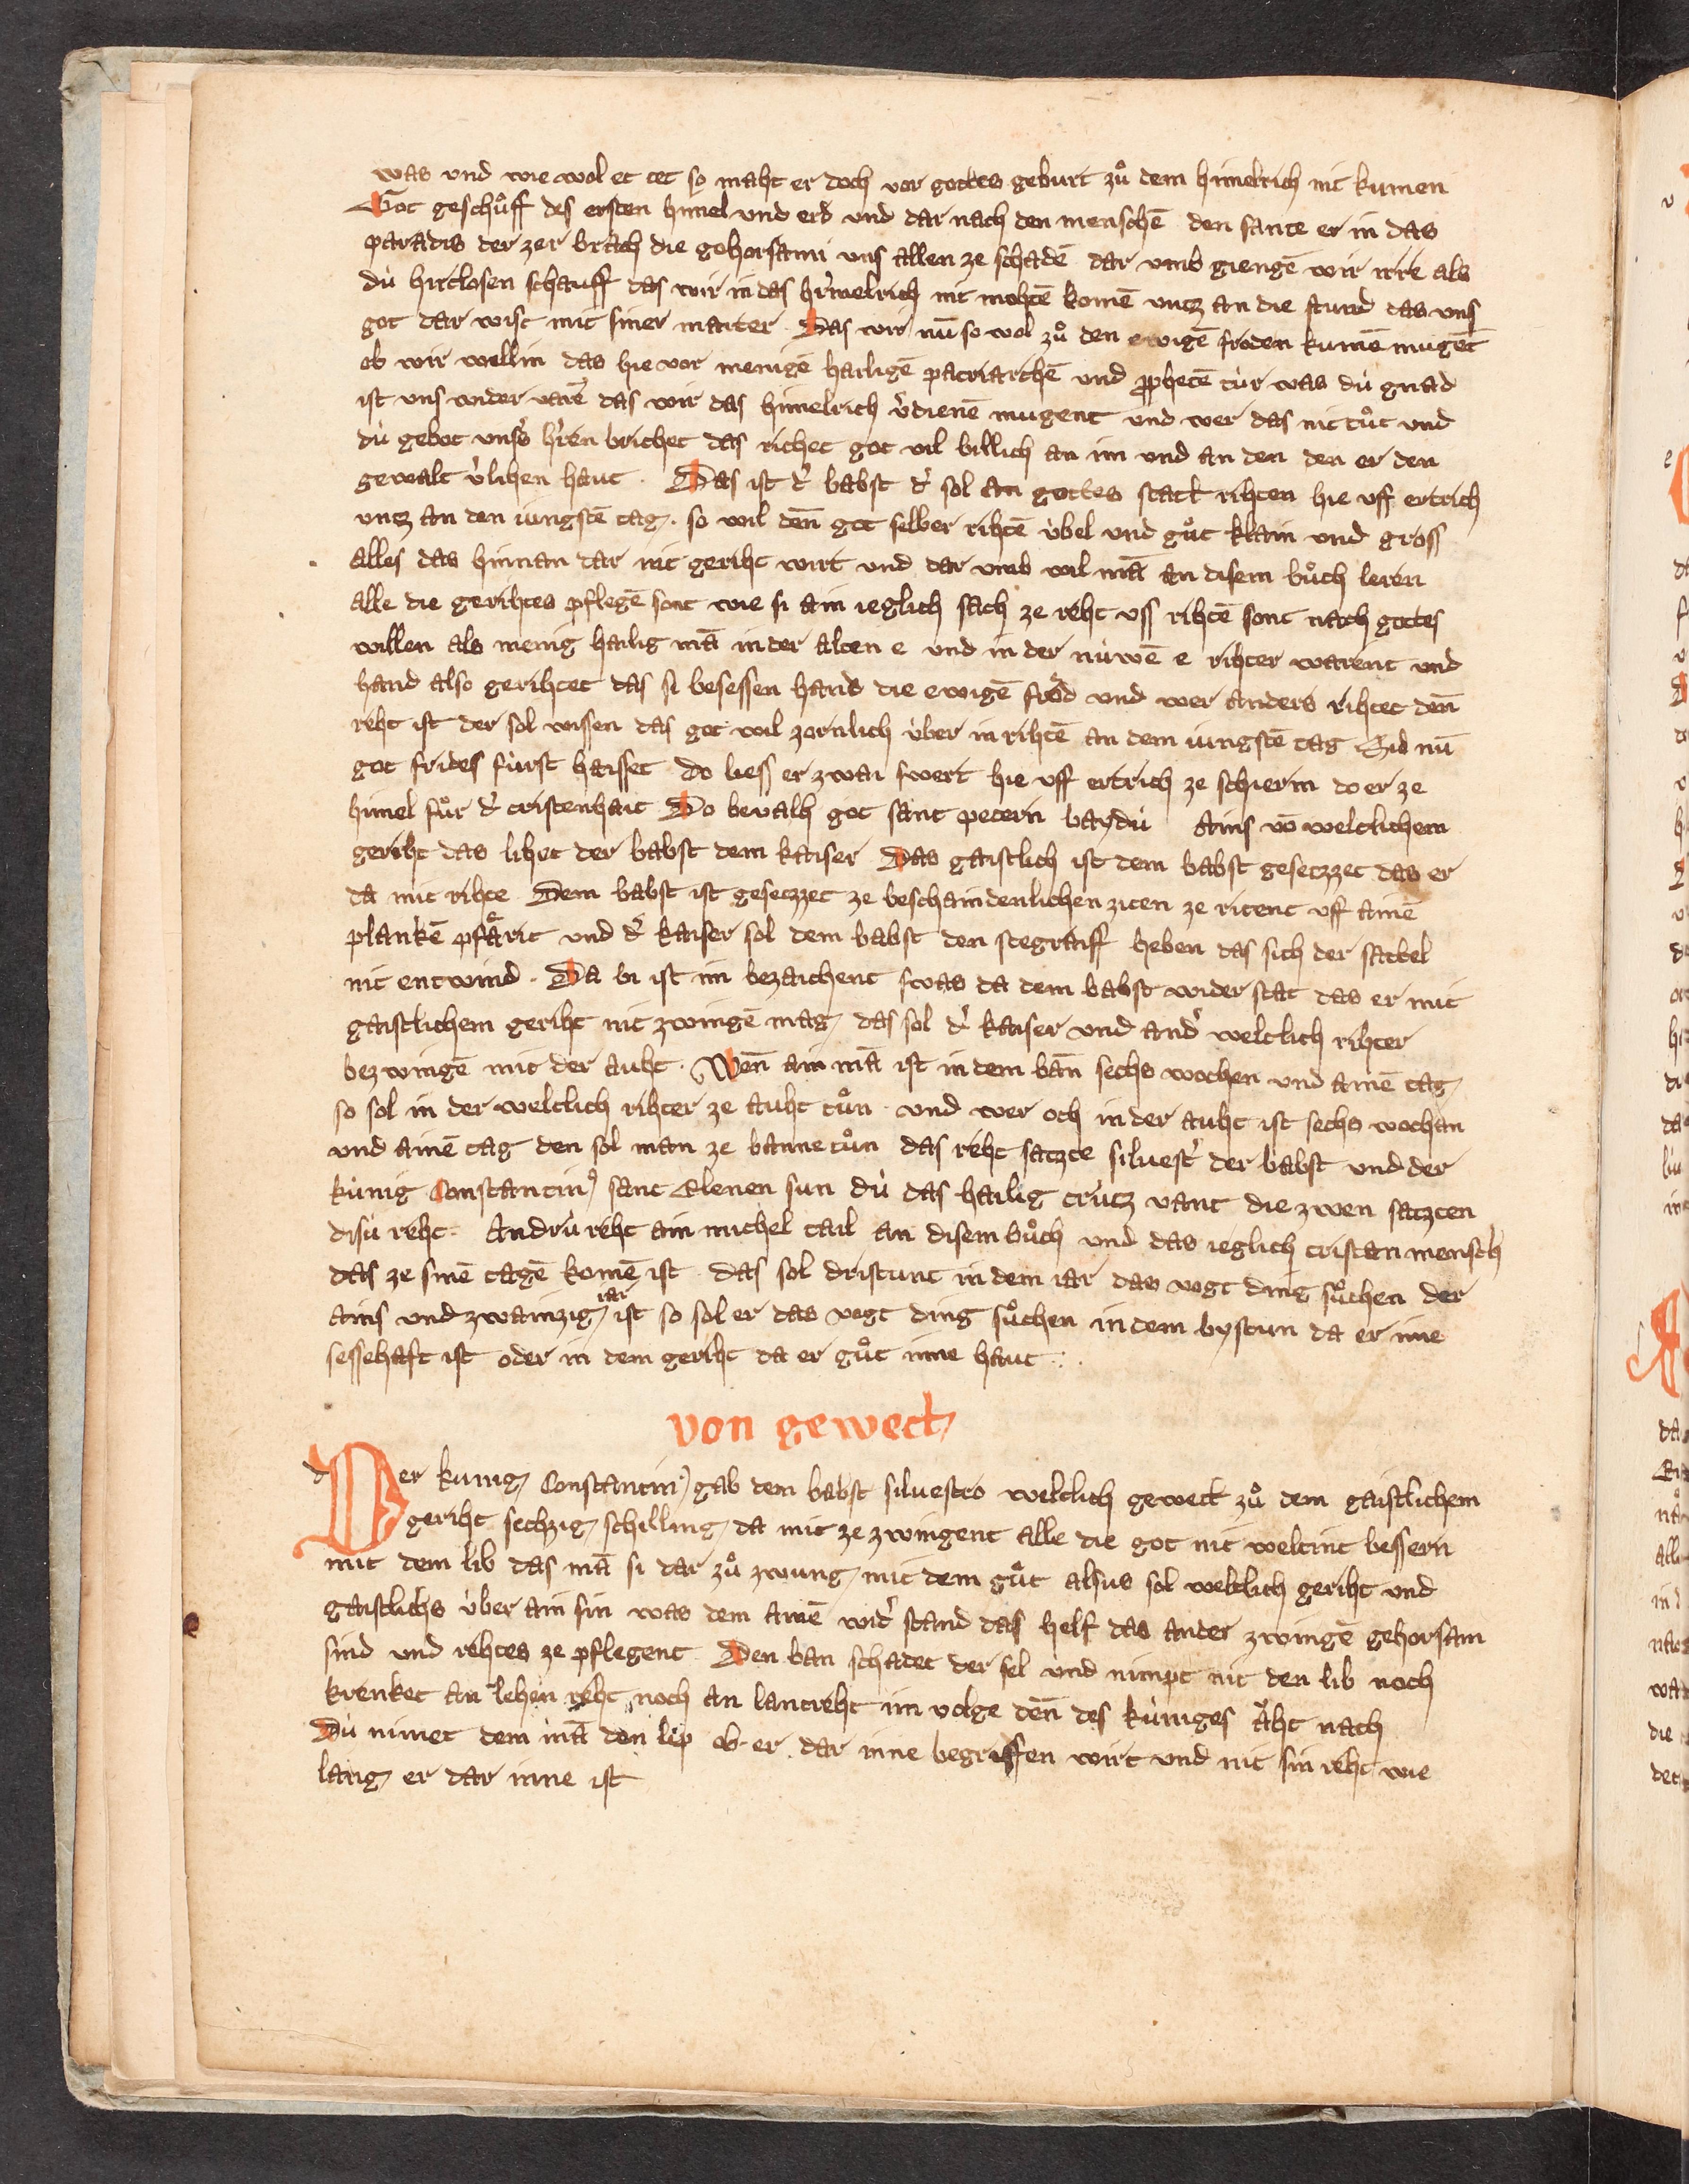 was und wie wol er tet so maht er doch vor gottes geburt zuͦ dem himelrich nit kumen
Got geschuͦff des ersten himel und erd und dar nach den menschē den sante er in das
paradis der zer brach die gehorsami uns allen ze schadē dar umb giengē wir irre als
dú hirtlosen schauff das wir in das himelrich nit mohtē komē untz an die stund das uns
got dar wist mit siner marter. Das wir nū so wol zuͦ den ewigē froͤden kumē mugēt
ob wir wellin das hie vor menigē hailigē patriarchē und ꝓphetē túr was dú gnad
ist uns wider varē das wir das himelrich v̓dienē mugent und wer das nit tuͦt und
dú gebot uns̓s h̓ren brichet das richet got vil billich an im und an den den er den
gewalt v̓lihen haut. Das ist d̓ babst d̓ sol an gottes statt rihten hie uff ertrich
untz an den iungstē tag. so wil deñ got selber rihtē úbel und guͦt klain und gross
alles das hinnan dar nit geriht wirt und dar umb wil mā an disem buͦch leren
alle die gerihtes pflegē sont wie si ain ieglich sach ze reht uss rihtē sont nach gottes
willen als menig hailig mā in der alten e und in der núwē e rihter warent und
hand also gerihtet das si besessen hand die ewigē froͤd und wer anders rihtet deñ
reht ist der sol wissen das got wil zornlich úber in rihtē an dem iungstē tag Sid nū
got frides fúrst haisset do liess er zwai swert hie uff ertrich ze schierm do er ze
himel fuͦr d̓ cristenhait Do bevalh got sant petern baydú Ains vō weltlichem
geriht das lihet der babst dem kaiser Das gaistlich ist dem babst gesetzzet das er
da mit rihte Dem babst ist gesetzzet ze beschaindenlichen ziten ze ritent uff ainē
plankē pfaͤrit und d̓ kaiser sol dem babst den stegraiff heben das sich der sattel
nit entwind. Da bi ist im bezaichent swas da dem babst wider stat das er mit
gaistlichem geriht nit zwingē mag das sol d̓ kaiser und and̓ weltlich rihter
bezwingē mit der auht. Wen̄ ain mā ist in dem ban̄ sechs wochen und ainē tag
so sol in der weltlich rihter ze auht tuͦn. und wer och in der auht ist sechs wochan
und ainē tag den sol man ze banne tuͦn das reht satzte siluest̓ der babst und der
kúnig Constantinꝰ sant Elenen sun dú das hailig crútz vant die zwen satzten
disú reht. Andrú reht ain michel tail an disem buͦch und das ieglich cristan mensch
das ze sinē tagē komē ist. das sol dristunt in dem iar das vogt ding suͦchen der
ains und zwainzig iar ist so sol er das vogt ding suͦchen in dem bystun da er inne
sessehaft ist oder in dem geriht da er guͦt inne haut:.
von gewett
d
Der kunig Constantinꝰ gab dem babst siluestro weltlich gewett zuͦ dem gaistlichem
geriht sechzig schilling da mit ze zwingent alle die got nit weltint bessern
mit dem lib das mā si dar zuͦ zwung mit dem guͦt alsus sol weltlich geriht und
gaistlichs úber ain sin was dem ainē wid̓ stand das helf das ander zwingē gehorsam
sind und rehtes ze pflegent. Den ban schadet der sel und nimpt nit den lib noch
krenket an lehen reht noch an lantreht im volge deñ des kúniges aͤht nach
Dú nimet dem mā den lip ob er dar inne begriffen wirt und nit sin reht wie
lang er dar inne ist